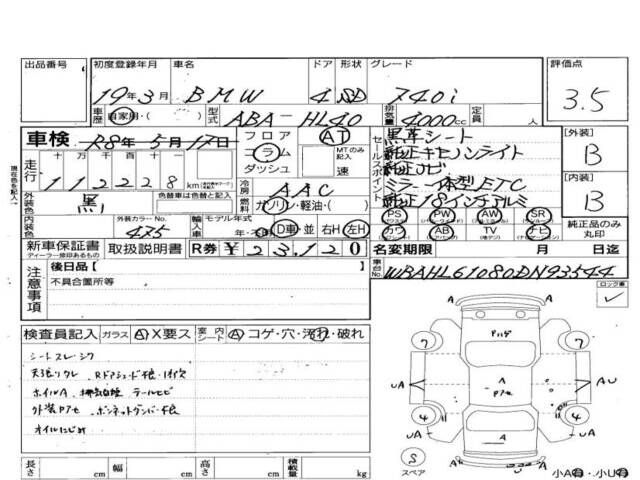 出品番号 初度登録年月 車名 ドア 形状 グレード 評価点
19年3月 BMW 4 SD 740i 3.5
車歴 自家用・( ) 型式 ABA-HL40 排気量 4000cc 定員 人
車検 R8年5月17日 フロア コラム ダッシュ AT MTのみ記入 速
セールスポイント
黒革シート
純正キセノンライト
純正ナビ
ミラー一体型ETC
純正18インチアルミ
[外装] B
[内装] B
走行 十 万 千 百 十 一
111228km
冷房 AAC
外装色 黒 色替車は色替と記入
燃料 ガソリン・軽油・( )
内装色 外装カラーNo. 475 輸入車 モデル年式 年・ D車・並 右H・左H
PS PW AW SR
カワ AB TV ナビ
純正品のみ丸印
新車保証書 取扱説明書 R券 ¥23,120
ディーラー捺印あるもの
名変期限 月 日迄
車台No. WBAHL61080DN93544
注意事項
後日品[ ]
不具合箇所等
ロック車
✓
検査員記入 ガラス A X要ス 室内シート A コゲ・穴・汚れ・破れ
シートスレ・シワ
ホイルA
外装Pアセ
オイルにじみ
Pハゲ
7 7
UA A AU
Pアセ
4 4
UA A UA
S
スペア
UA
長さ cm 幅 cm 高さ cm 積載量 kg
小A有・小U有